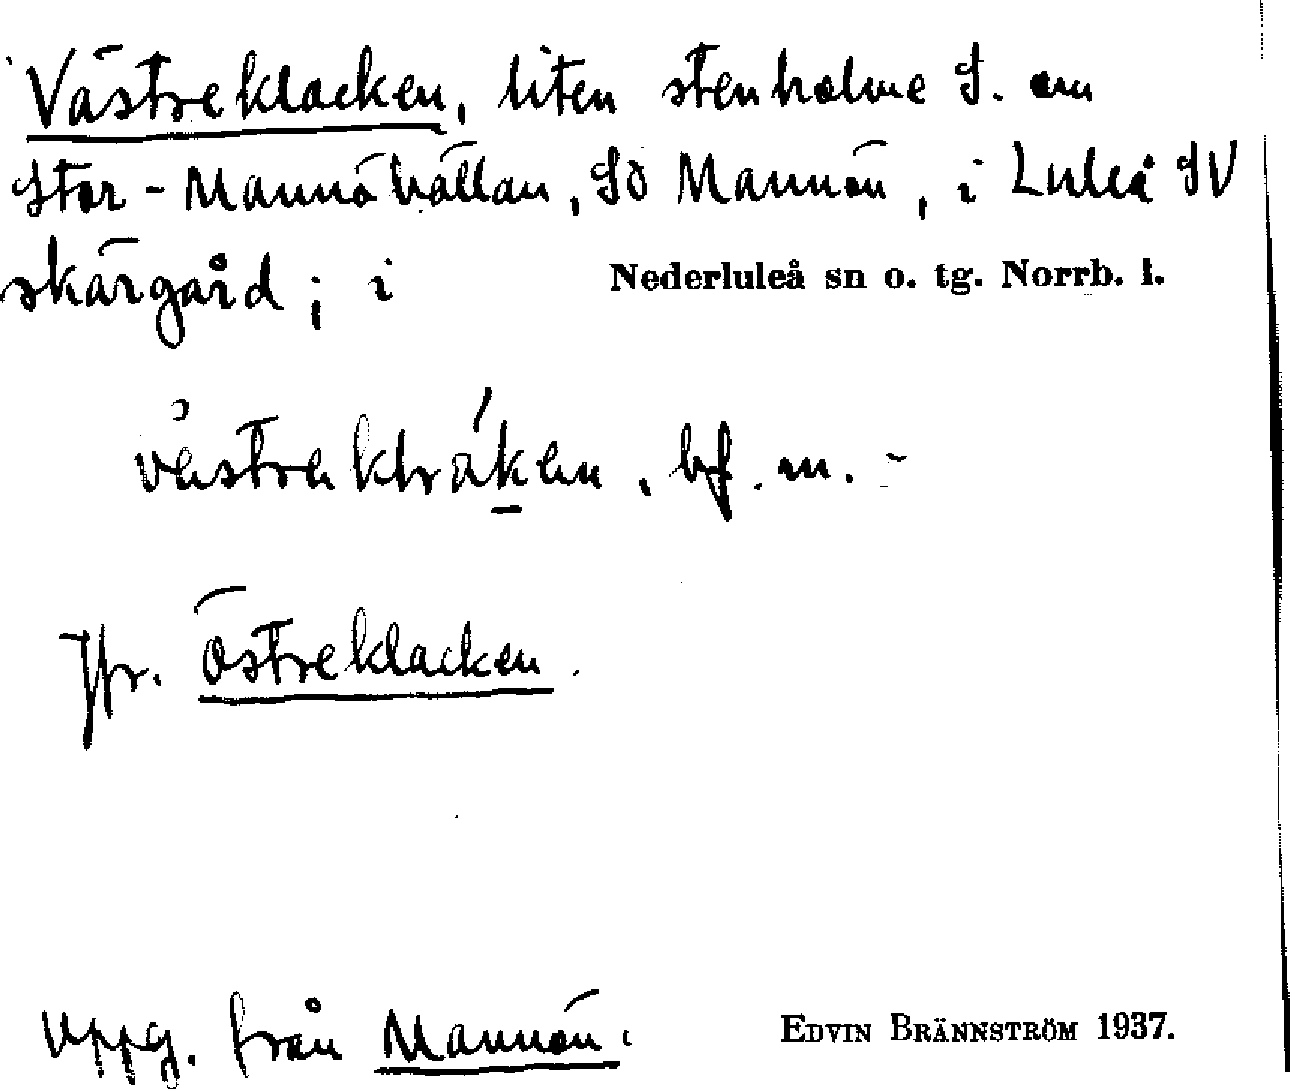 Västreklacken, liten stenholme S. om
Stor-Mannöhällan, SO Mannön, i Luleå SV
skärgård; i Nederluleå sn o. tg. Norrb. l.
bf. m. -
Jfr. Östreklacken.
Uppg. från Mannön. EDVIN BRÄNNSTRÖM 1937.